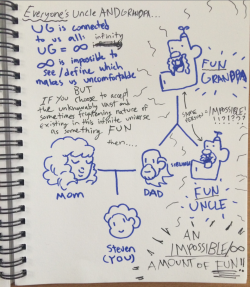 Everyone's Uncle AND GRANDPA...
UG is connected
to us all: infinity
UG = ∞
∞ is impossible to
see/define which
makes us uncomfortable
BUT
IF you choose to accept
the unknowably vast and
sometimes frightening nature of
existing in this infinite universe
as something FUN
then...
FUN
GRANDPA
SAME PERSON?
IMPOSSIBLE!
SIBLINGS
MOM
DAD
FUN
UNCLE
Steven
(YOU)
AN
IMPOSSIBLE/∞
AMOUNT OF FUN!!